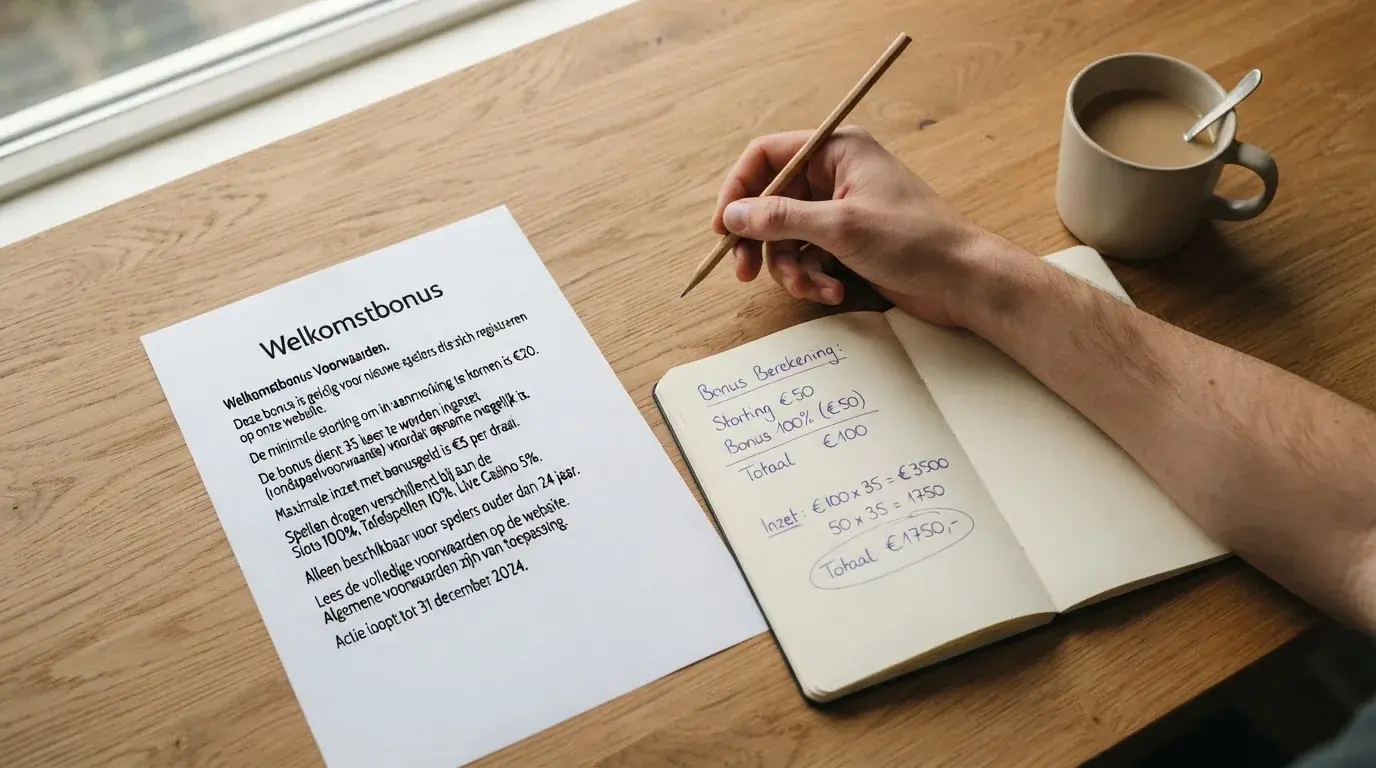 Welkomstbonus
Welkomstbonus Voorwaarden.
Deze bonus is geldig voor nieuwe spelers die zich registreren
op onze website.
De minimale storting om in aanmerking te komen is €20.
De bonus dient 35 keer te worden ingezet
(rondspeelvoorwaarde) voordat opname mogelijk is.
Maximale inzet met bonusgeld is €5 per draai.
Spellen dragen verschillend bij aan de
Slots 100%, Tafelspellen 10%, Live Casino 5%.
Alleen beschikbaar voor spelers ouder dan 24 jaar.
Lees de volledige voorwaarden op de website.
Algemene voorwaarden zijn van toepassing.
Actie loopt tot 31 december 2024.
Bonus Berekening:
Storting €50
Bonus 100% (€50)
Totaal €100
Inzet: €100 x 35 = €3500
50 x 35 = 1750
Totaal €1750,-